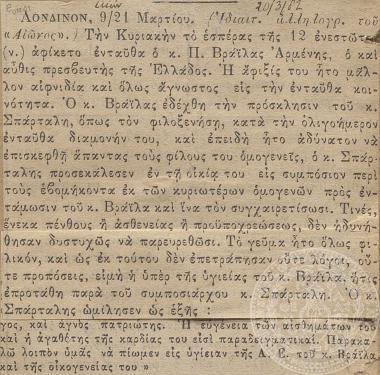 Αἰών
20/3/82
ΛΟΝΔΙΝΟΝ, 9/21 Μαρτίου. (Ἰδιαιτ. ἀλληλογρ. τοῦ
«Αἰῶνος».) Τὴν Κυριακὴν τὸ ἑσπέρας τῆς 12 ἐνεστῶτ(
(ν.) ἀφίκετο ἐνταῦθα ὁ κ. Π. Βράϊλας Ἀρμένης, ὁ κα
αὐθις πρεσβευτὴς τῆς Ἑλλάδος. Ἡ ἄφιξίς του ἦτο μᾶλ-
λον αἰφνιδία καὶ ὅλως ἄγνωστος εἰς τὴν ἐνταῦθα κοι-
νότητα. Ὁ κ. Βράϊλας ἐδέχθη τὴν πρόσκλησιν τοῦ κ.
Σπάρταλη, ὅπως τὸν φιλοξενήσῃ, κατὰ τὴν ὀλιγοήμερον
ἐνταῦθα διαμονήν του, καὶ ἐπειδὴ ἦτο ἀδύνατον νὰ
ἐπισκεφθῇ ἅπαντας τοὺς φίλους του ὁμογενεῖς, ὁ κ. Σπάρ-
ταλης προσεκάλεσεν ἐν τῇ οἰκίᾳ του εἰς συμπόσιον περὶ
τοὺς ἑβδομήκοντα ἐκ τῶν κυριωτέρων ὁμογενῶν πρὸς ἐν-
τάμωσιν τοῦ κ. Βράϊλα καὶ ἵνα τὸν συγχαιρετίσωσι. Τινές,
ἕνεκα πένθους ἢ ἀσθενείας ἢ προϋποχρεώσεως, δὲν ἠδυνή-
θησαν δυστυχῶς νὰ παρευρεθῶσι. Τὸ γεῦμα ἦτο ὅλως φι-
λικόν, καὶ ὡς ἐκ τούτου δὲν ἐπετράπησαν οὔτε λόγοι, οὔ-
τε προπόσεις, εἰμὴ ἡ ὑπὲρ τῆς ὑγιείας τοῦ κ. Βράϊλα, ἥτις
ἐπροτάθη παρὰ τοῦ συμποσιάρχου κ. Σπάρταλη. Ὁ κ.
Σπάρταλης ὡμίλησεν ὡς ἑξῆς :
γος, καὶ ἁγνὸς πατριώτης. Ἡ εὐγένεια τῶν αἰσθημάτων του
καὶ ἡ ἀγαθότης τῆς καρδίας του εἰσὶ παραδειγματικαί. Παρακα-
λῶ λοιπὸν ὑμᾶς νὰ πίωμεν εἰς ὑγίειαν τῆς Α. Ε. τοῦ κ. Βράϊλα
καὶ τῆς οἰκογενείας του »